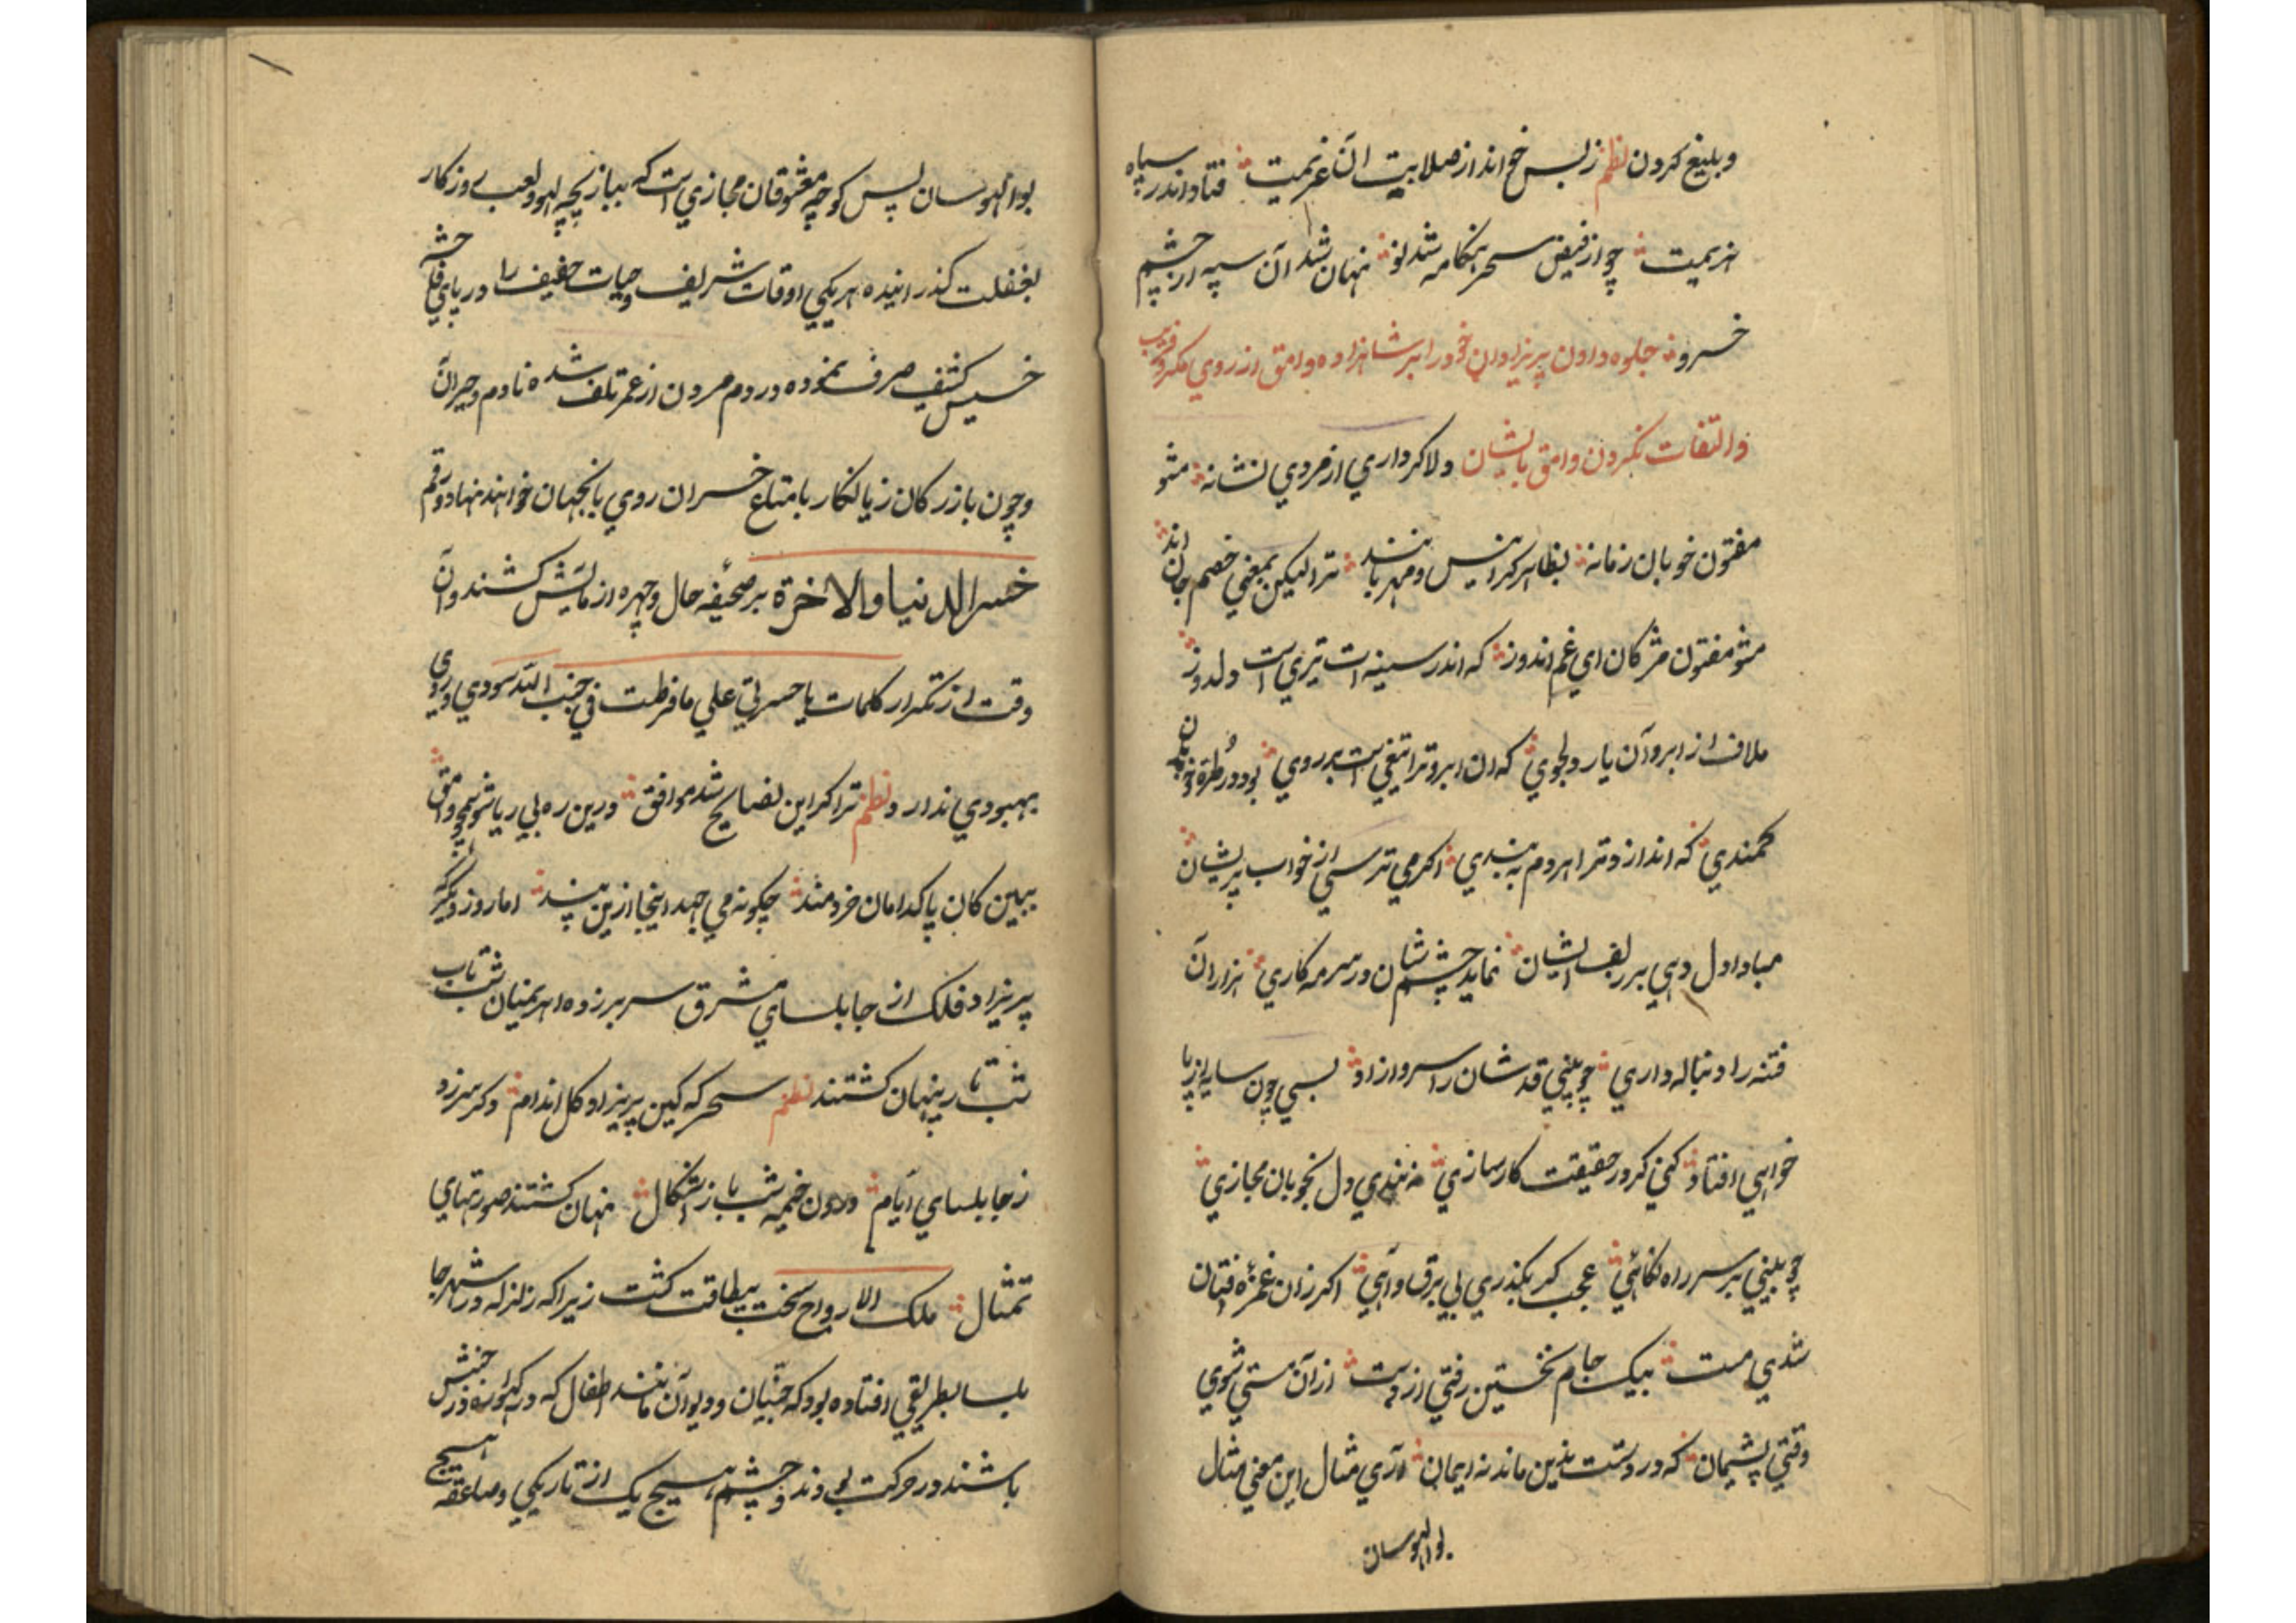 وبلیغ کردن نظم زبس خواند از صلابیت ان عزیمت فتاد اندر سپاه
هزیمت چو از فیض سحر هنکامه شد نو نهان شد آن سپه از چشم
خسرو جلوه دادن پریزادان خود را بر شاهزاده وامق از روی مکر و فریب
والتفات نکردن وامق بایشان دلا کر داری از مردی نشانه مشو
مفتون خوبان زمانه بظاهر کر انیس و مهربانند ترا لیکن بمعنی خصم جان اند
مشو مفتون مژکان ای غم اندوز که اندر سینه ات تیری است دلدوز
ملاف از ابرو آن یار دلجوی که ان ابرو ترا تیغی است بر روی بود در طرهٔ خوبان
کمندی که اندازد ترا هر دم به بندی اکر می ترسی از خواب پریشان
مبادا دل دهی بر زلف ایشان نماید چشم شان در سرمه کاری هزاران
فتنه را دنباله داری چو بینی قد شان را سرو ازاد بسی چون سایه از پا
خواهی افتاد کنی کر در حقیقت کارسازی نه بندی دل بخوبان مجازی
چو بینی بر سر راه نکاهی عجب کر بکذری بی برق و آهی اکر زان غمزهٔ فتان
شدی مست بیک جام نخستین رفتی از دست ازان مستی شوی
وقتی پشیمان که در دستت نه دین ماند نه ایمان آری مثال این معنی مثال
بوالهوسان
بوالهوسان پس کوچه معشوقان مجازی است که ببازیچه لهو و لعب روزکار
بغفلت کذرانیده هریکی اوقات شریف و حیات خفیف را در پای فاحشه
خسیس کثیف صرف نموده در دم مردن از عمر تلف شده نادم و حیران
وچون بازرکان زیانکار بامتاع خسران روی بانجهان خواهند نهاد و رقم
خسر الدنیا والاخرة بر صحیفه حال و چهره ازمایش کشند وآن
وقت از تکرار کلمات یا حسرتی علی ما فرطت فی جنب الله سودی و روی
بهبودی ندارد نظم ترا کر این نصایح شد موافق درین ره بی ریا شو همچو وامق
ببین کان پاکدامان خردمند چکونه می جهد اینجا ازین بند اما روز دیکر که
پریزاد فلک از جابلسای مشرق سر بر زده اهریمنیان شب تاب
شب تار پنهان کشتند نظم سحر که کین پریزاد کل اندام دکر سر زد
ز جابلسای ایام درون خیمه شب باز اشکال نهان کشتند صورتهای
تمثال ملک الارواح سخت بیطاقت کشت زیرا که زلزله در شهر جا
بلسا بطریقی افتاده بود که جنیان و دیوان مانند اطفال که در کهواره در جنبش
باشند در حرکت بودند و چشم هیچ یک از تاریکی و صاعقه هیچ